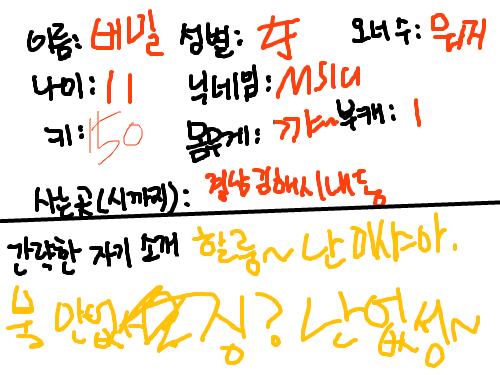 이름: 비밀 성별: 女 오너 수:
나이: 11 닉네임:
키: 150 몸무게: 꺄~ 부캐: 1
사는곳(시까지): 경남 김해시 내동
간략한 자기 소개 할룽~ 난 미샤아.
북 만없 징? 난 없성~